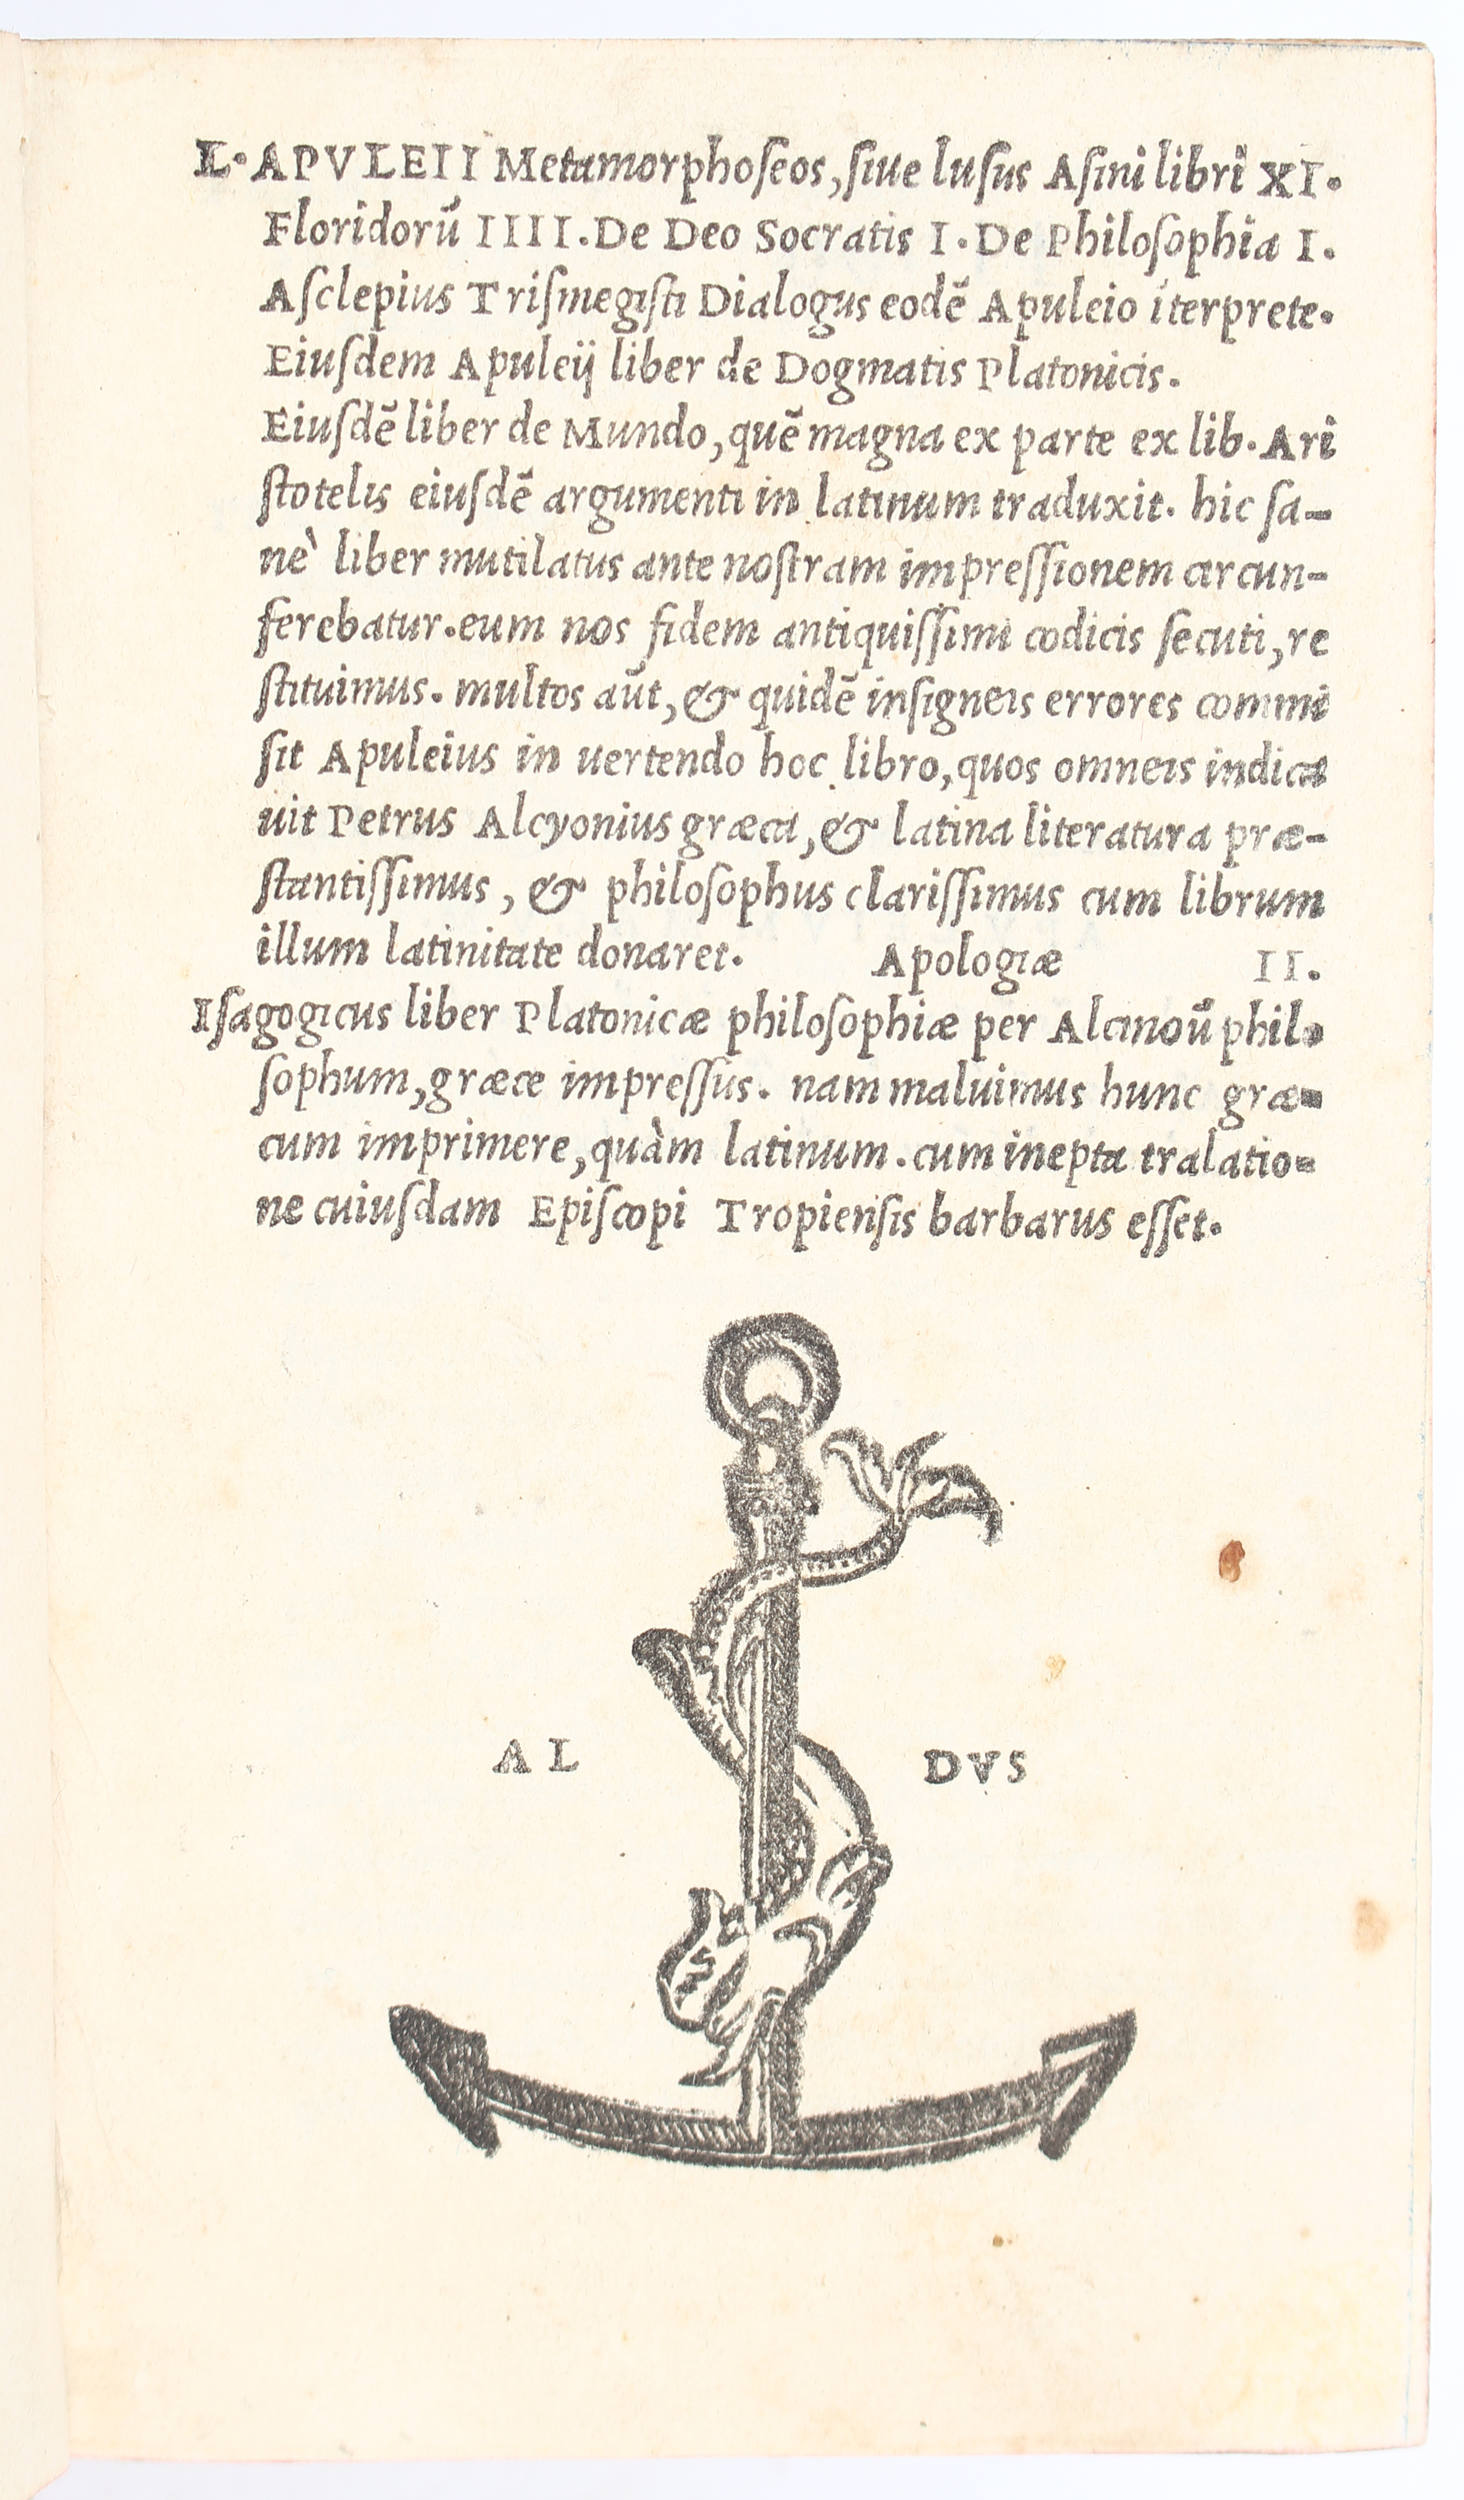 L. APVLEII Metamorphoſeos, ſiue luſus Aſini libri XI.
Floridorũ IIII. De Deo Socratis I. De Philoſophia I.
Aſclepius Triſmegiſti Dialogus eodẽ Apuleio ĩterprete.
Eiuſdem Apuleij liber de Dogmatis Platonicis.
Eiuſdẽ liber de Mundo, quẽ magna ex parte ex lib. Ari
ſtotelis eiuſdẽ argumenti in latinum traduxit. hic ſa-
nè liber mutilatus ante noſtram impreſſionem circun-
ferebatur. eum nos fidem antiquiſſimi codicis ſecuti, re
ſtituimus. multos aũt, & quidẽ inſigneis errores commi
ſit Apuleius in uertendo hoc libro, quos omneis indica
uit Petrus Alcyonius græca, & latina literatura præ-
ſtantiſſimus, & philoſophus clariſſimus cum librum
illum latinitate donaret. Apologiæ II.
Iſagogicus liber Platonicæ philoſophiæ per Alcinoũ philo
ſophum, græce impreſſus. nam maluimus hunc græ-
cum imprimere, quàm latinum. cum inepta tralatio-
ne cuiuſdam Epiſcopi Tropienſis barbarus eſſet.
AL DVS